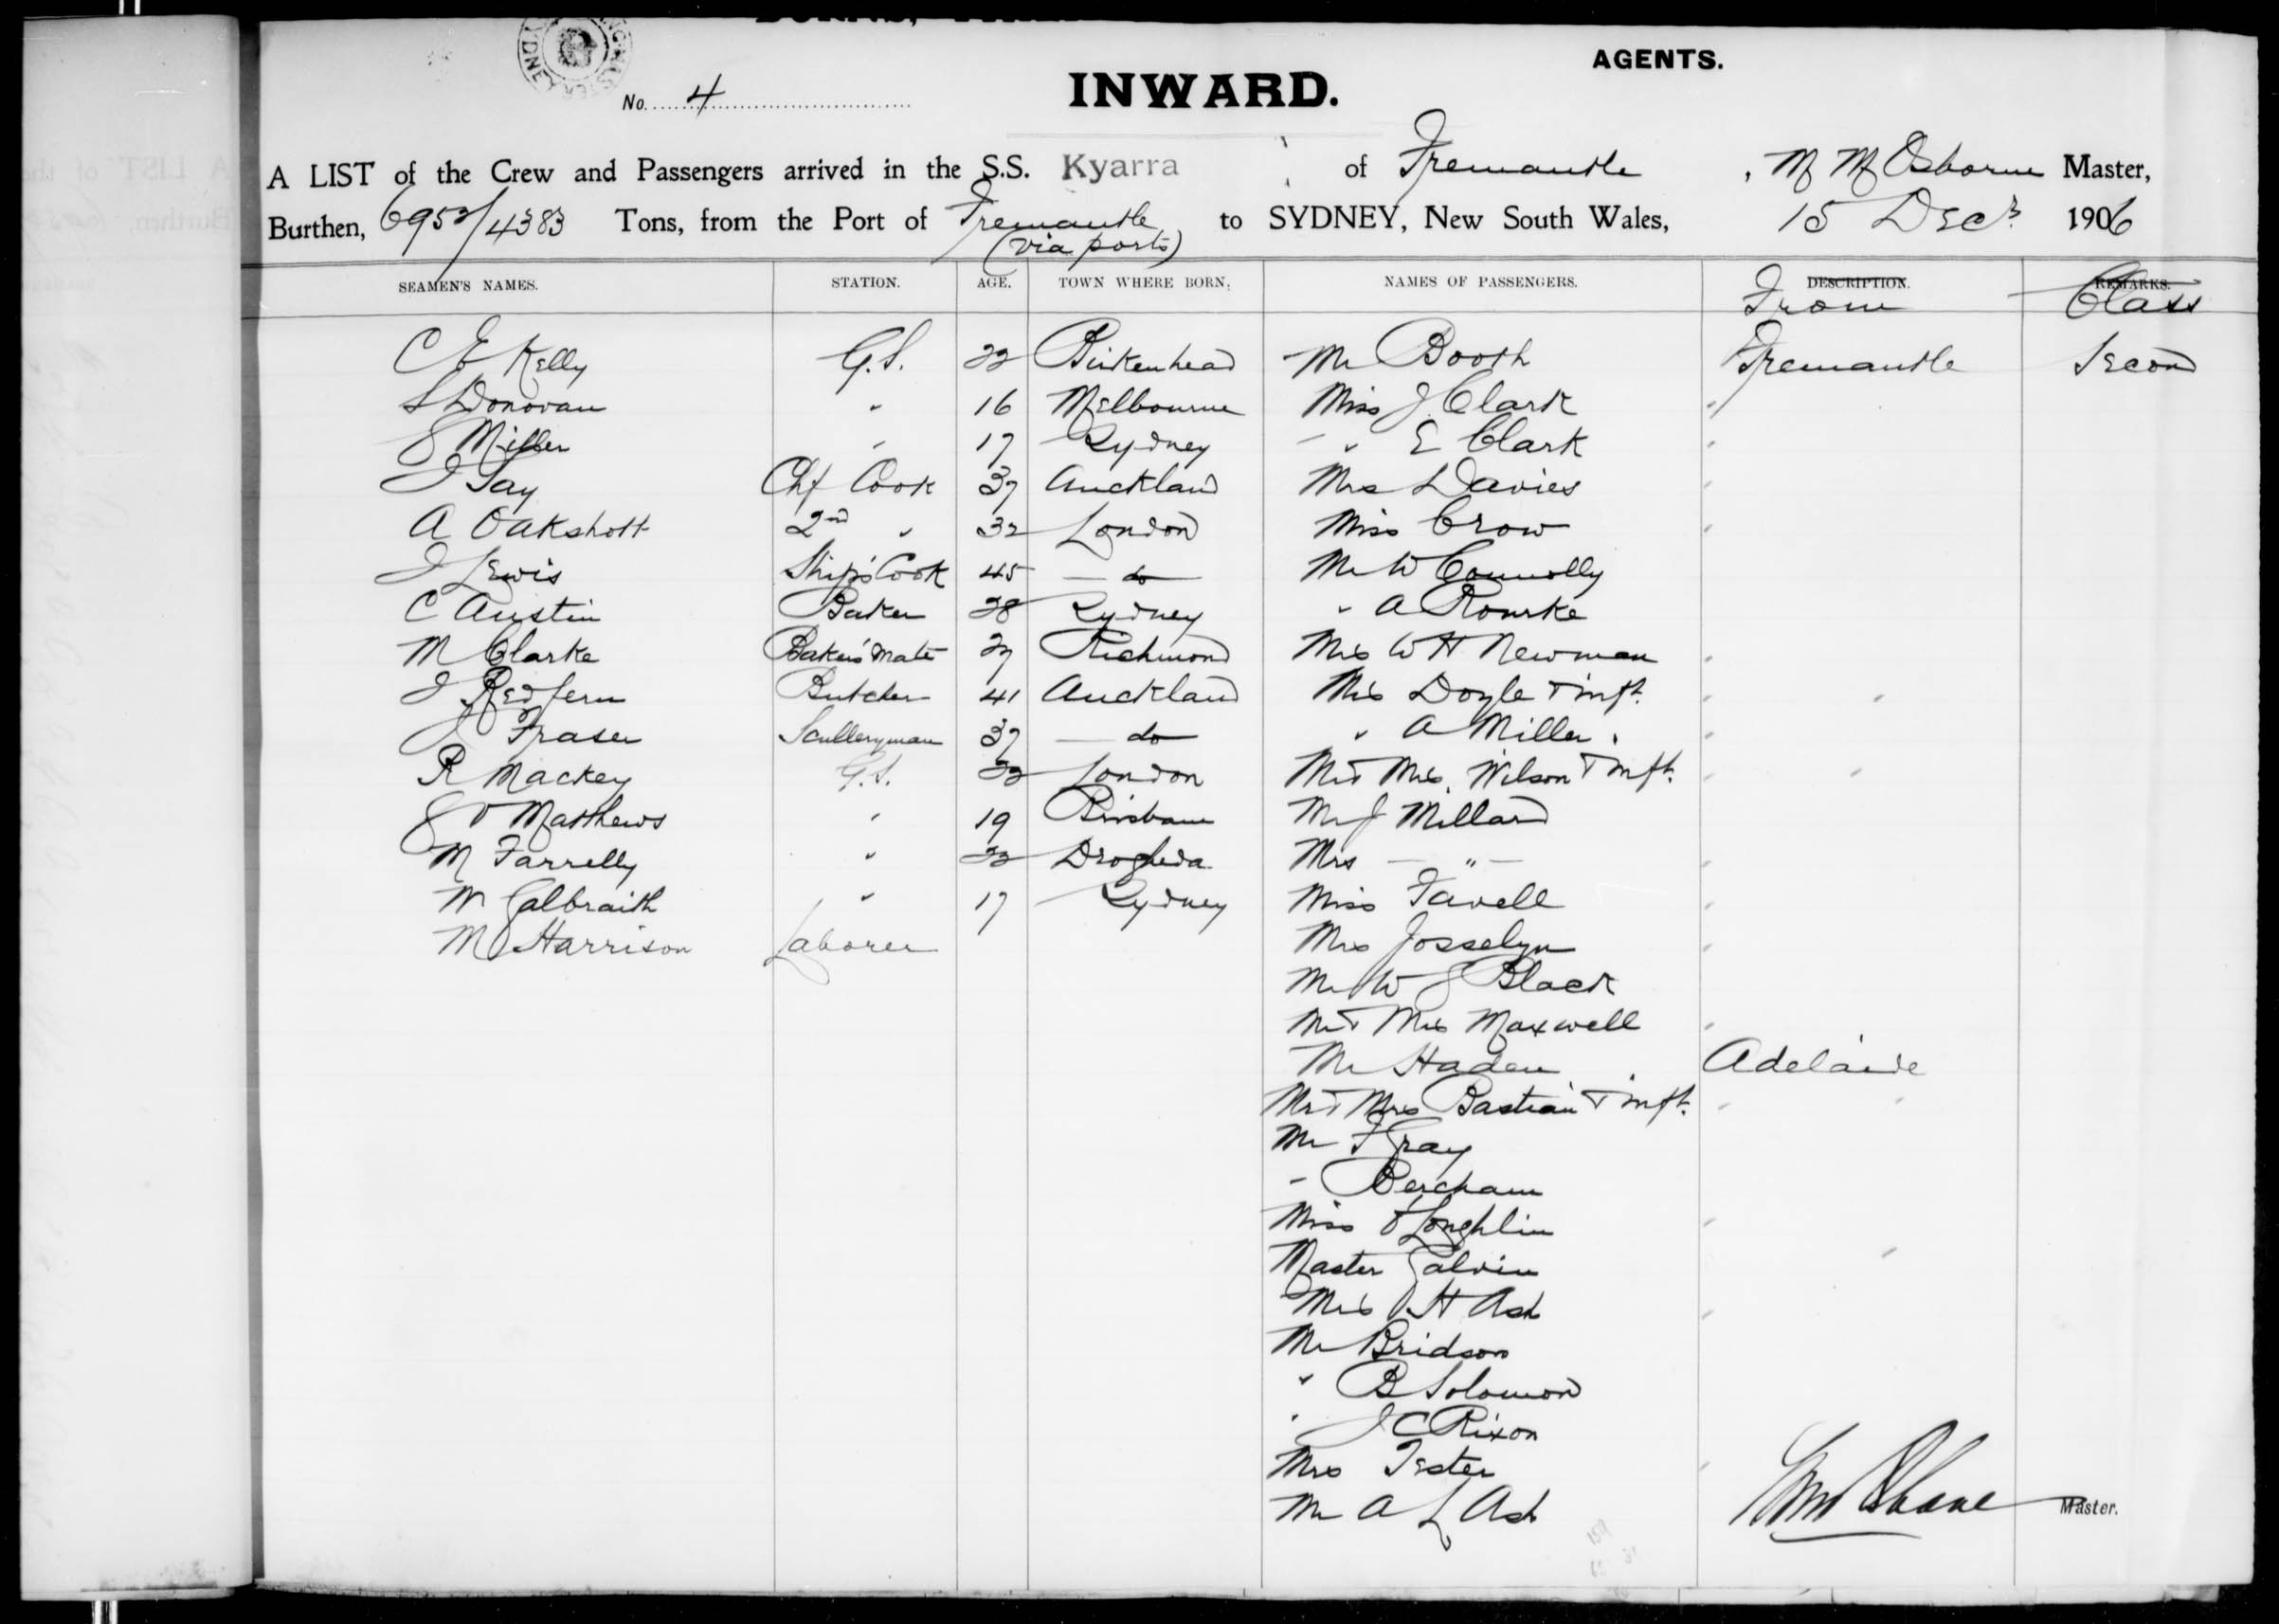 AGENTS.
No. 4
INWARD.
A LIST of the Crew and Passengers arrived in the S.S. Kyarra of Fremantle, M M Osborne Master,
Burthen, 6953/4383 Tons, from the Port of Fremantle (via ports) to SYDNEY, New South Wales, 15 Decr 1906
SEAMEN'S NAMES. STATION. AGE. TOWN WHERE BORN. NAMES OF PASSENGERS. DESCRIPTION. REMARKS.
From Class
C E Kelly G.S. 22 Birkenhead Mr Booth Fremantle Second
S Donovan " 16 Melbourne Miss J. Clark "
J Miller " 17 Sydney " E Clark "
J Tay Chf Cook 37 Auckland Mrs Davies "
A Oakshott 2nd " 32 London Miss Crow "
J Lewis Ship's Cook 45 do Mr W Connolly
C Austin Baker 28 Sydney " A Rourke
M Clarke Baker's Mate 27 Richmond Mrs W H Newman "
J Redfern Butcher 41 Auckland Mrs Doyle & inft. " "
J Fraser Sculleryman 37 do " A Miller "
R Mackey G.S. 22 London Mr & Mrs Wilson & inft. " "
J V Matthews " 19 Brisbane Mr J Millard
M Farrelly " 22 Drogheda Mrs — " — "
W Galbraith " 17 Sydney Miss Favell "
M Harrison Laborer Mrs Josselyn "
Mr W J Black
Mr & Mrs Maxwell "
Mr Haden Adelaide
Mr & Mrs Bastian & inft. " "
Mr F Gray
" Bercham
Miss O'Loughlin "
Master Galvin "
Mrs H Ash "
Mr Bridson
" B Solomon
" J C Rixon
Mrs Tester "
Mr A L Ash
Master.